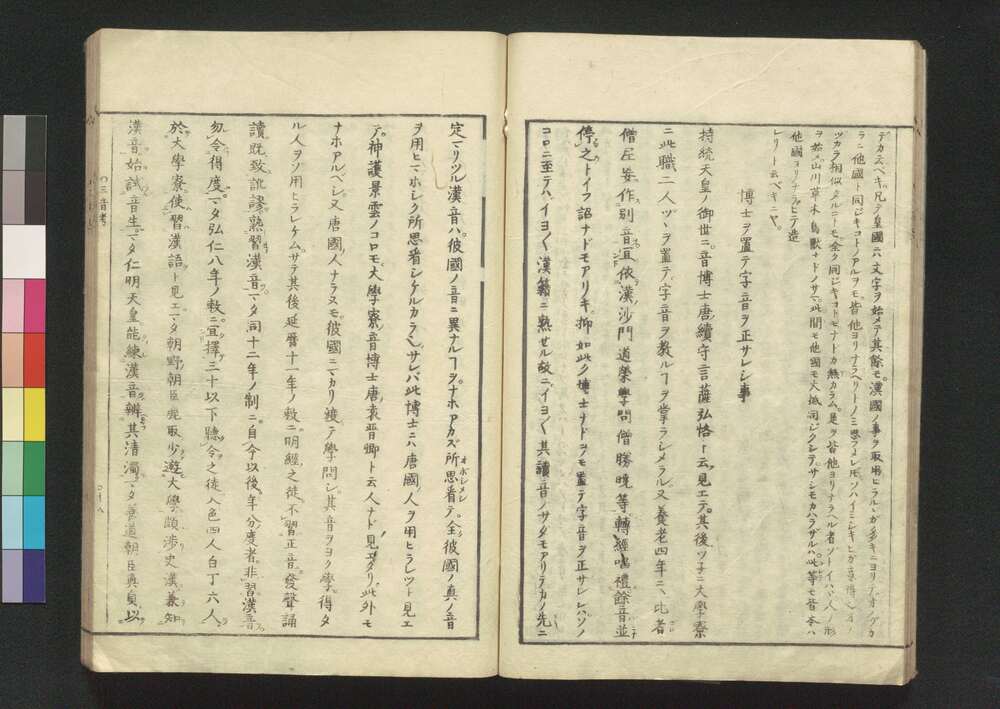 デ然云ベキ凡テ皇國ニハ文字ヲ始メテ其餘モ漢國ノ事ヲ取用ヒラルヽガ多キニヨリテオノヅカ
ラニ他國ト同ジキコトノアルヲモ皆他ヨリナラヘリトノミ思フメレド
ツカラ相似タルコトモ全ク同ジキコトモナドカ無カラム是ヲ皆他ヨリナラヘル者ゾトイハヾ人ノ形
ヲ始メ山川草木鳥獸ナドノサマ此間モ他國モ大抵同ジクシテサシモカハラザルハ此等モ皆本ハ
他國ヨリナラヒテ造
レリト云ベキニヤ
博士ヲ置テ字音ヲ正サレシ事
持統天皇ノ御世ニ音博士唐續守言薩弘恪ト云見エテ其後ツ子ニ大學寮
ニ此職二人ヅヽヲ置テ字音ヲ教ルヿヲ掌ラシメラル又養老四年ニハ比者
僧尼妄作別音宜依漢沙門道榮學問僧勝曉等轉經唱禮餘音並
停之トイフ詔ナドモアリキ抑如此ク博士ナドヲモ置テ字音ヲ正サレシハソノ
コロニ至テハイヨ〱漢籍ニ熟セル故ニイヨ〱其讀音ノサダモアリテカノ先ニ
定マリツル漢音ハ彼國ノ音ニ異ナルヿヲナホアカズ所思看テ全彼國ノ真ノ音
ヲ用ヒマホシク所思看シケルカラヘサレバ此博士ニハ唐國人ヲ用ヒラレツト見エ
テ神護景雲ノコロモ大學寮音博士唐袁晋卿ト云人ナド見エタリ此外モ
ナホアルベシ又唐國人ナラヌモ彼國ニマカリ渡テ學問シ其音ヲヨク學得タ
ル人ヲゾ用ヒラレケムサテ其後延暦十一年ノ敕ニ明經之徒不習正音發聲誦
讀既致訛謬熟習漢音マタ同十二年ノ制ニ自今以後年分度者非習漢音
勿令得度マタ弘仁八年ノ敕ニ宜擇三十以下聽令之徒入色四人白丁六人
於大學寮使習漢語ト見エマタ朝野朝臣鹿取少遊大學頗渉史漢兼知
漢音始試音生マタ仁明天皇能練漢音辨其清濁マタ善道朝臣真貞以